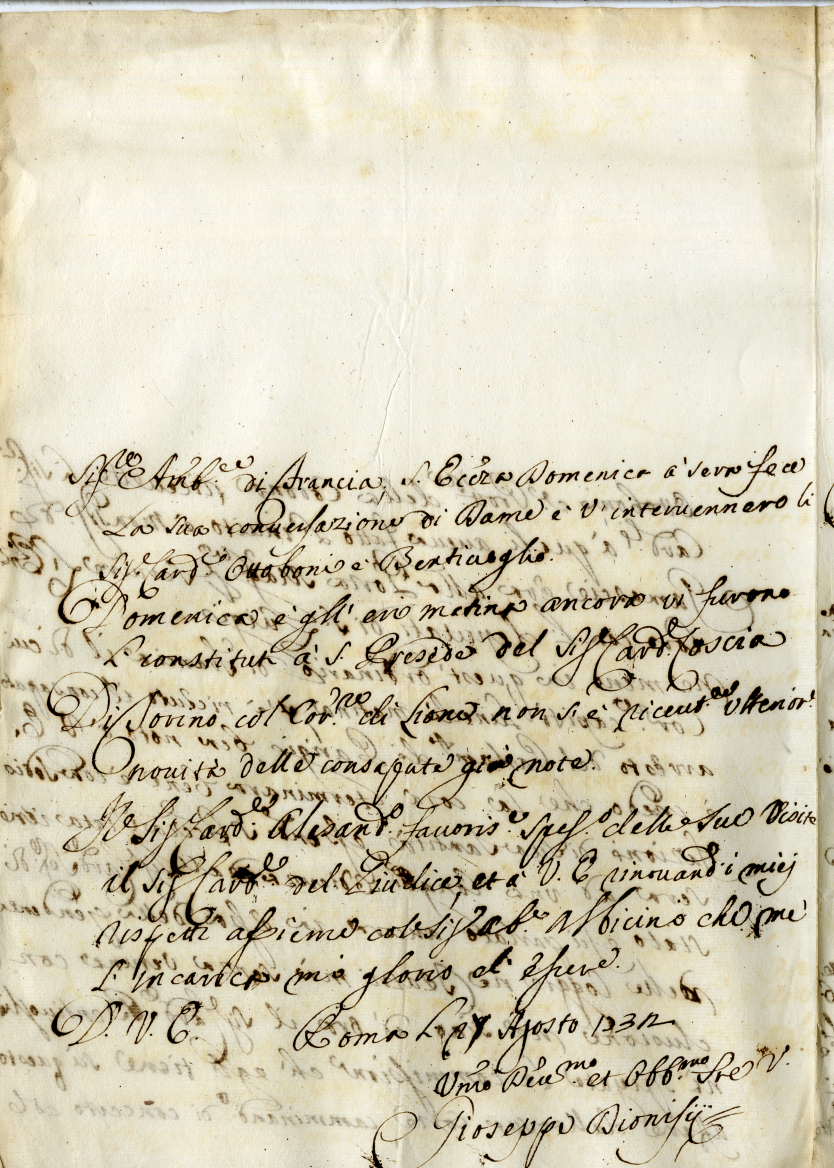 Sig.re Amb.re di Francia, S. Ecc̃za Domenica à sera fece
La sua conversazione di Dame è v'intervennero li
Sig.i Card.i Ottoboni e Bentivoglio.
Domenica è gl'eri matina ancora vi furono
L constituti à S. Presede del Sig.r Card.e Coscia
Di Torino col Cor.re di Lione non s'è ricevut ulterior.
novità delle consapute già note.
Il Sig.r Card.e Alesand.o favoris.e spes.o delle sue visite
il Sig.r Card.e del Giudice, et à V. E. rinovand.i miej
rispetti assieme col Sig.r Ab.e Albicini che me
L'incarica mi glorio d'essere.
D. V. E. Roma L 27 Agosto 1732
Vmõ Deu.mo et Obb.mo Sre V.
Gioseppe Dionisij